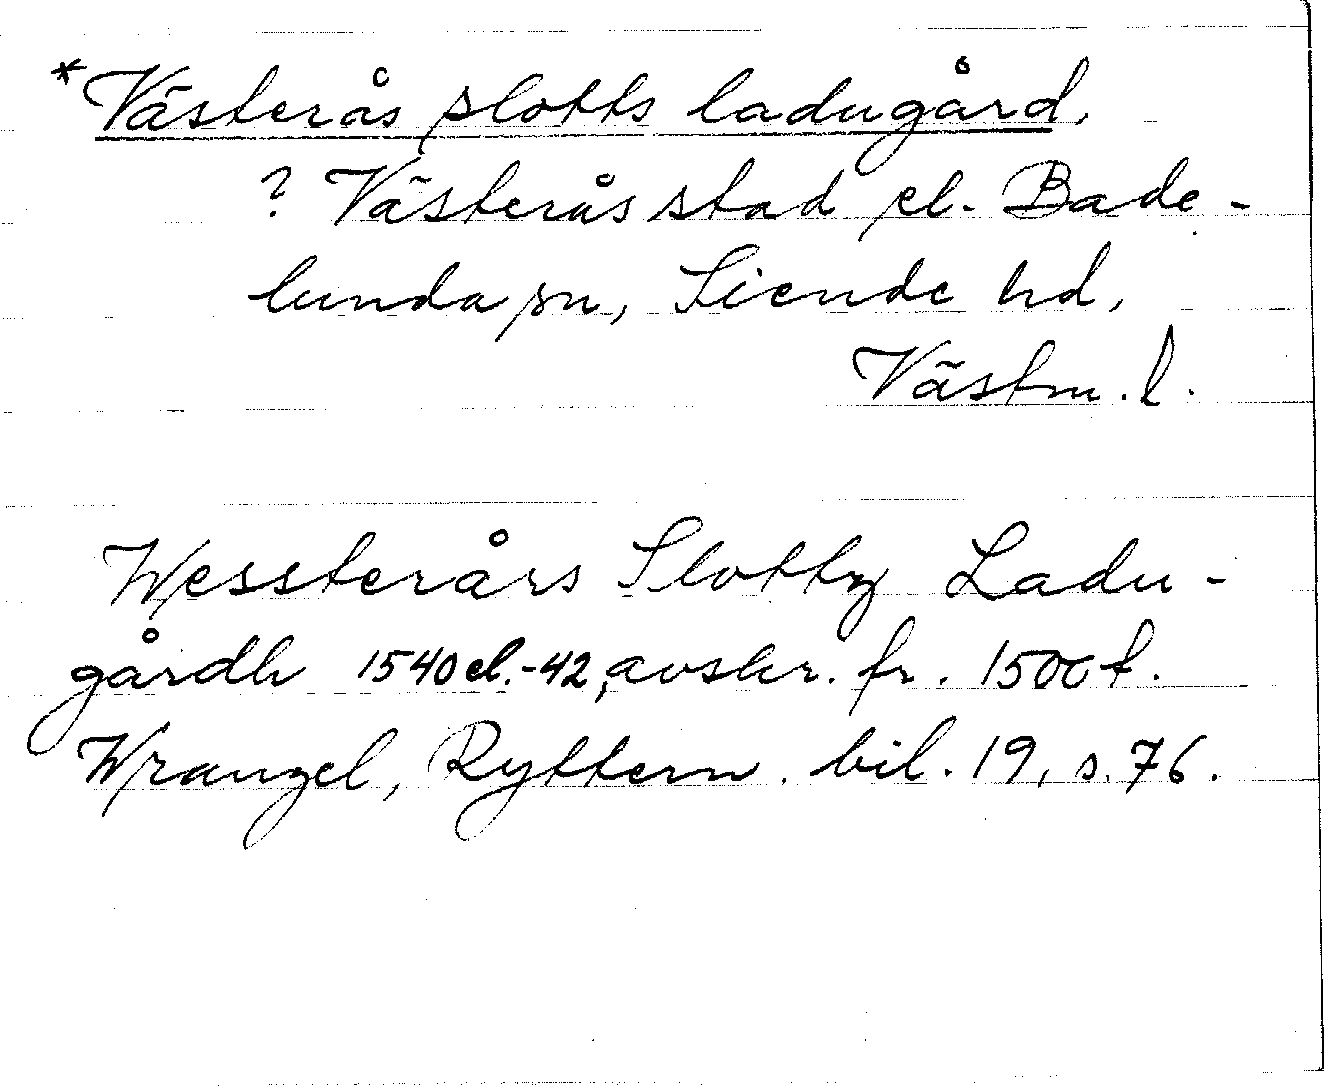 *Västerås slotts ladugård,
? Västerås stad el. Bade-
lunda sn, Siende hd,
Västm. l.
Wessterårs Slottz Ladu-
gårdh 1540 el.-42, avskr. fr. 1500 t.
Wrangel, Ryttern. bil. 19, s. 76.